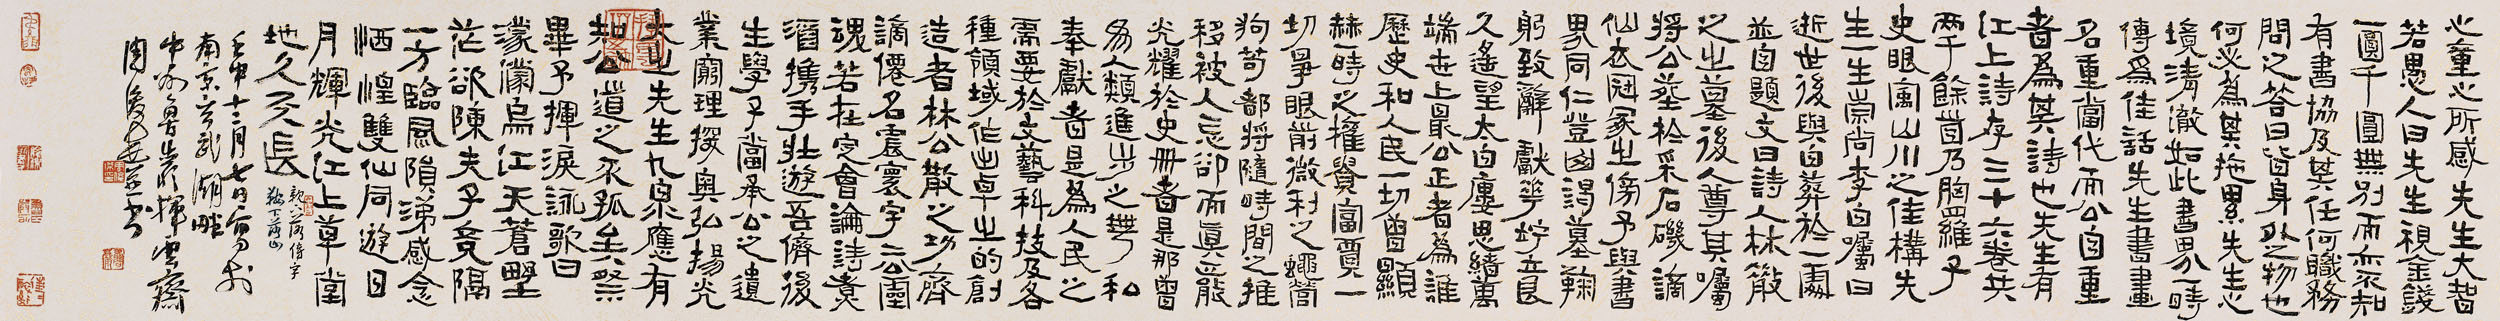 心童心所感先生大智
若愚人曰先生視金錢
一圓千圓無別而亦不知
有書協及其任何職務
問之答曰皆身外之物也
何必為其拖累先生心
境清澈如此書界一時
傳為佳話先生書畫
名重當代而公自重
者為其詩也先生有
江上詩存三十六卷共
兩千餘首乃胸羅子
史眼寓山川之佳構先
生一生崇尚李白囑曰
逝世後與白葬於一處
並自題文曰詩人林散
之之墓後人尊其囑
將公墓於采石磯謫
仙衣冠冢之傍予與書
界同仁登囪謁墓鞠
躬致辭獻花佇立良
久遙望太白廔思緒萬
端世上最公正者為誰
歷史和人民一切曾顯
赫一時之權貴富賈一
切爭眼前微利之蠅營
狗苟都將隨時間之推
移被人忘卻而真正能
光耀於史冊者是那曾
為人類進步之興和
奉獻者是為人民之
需要於文藝科技及各
種領域作出卓出的創
造者林公散之功齊
謫僊名震寰宇二公靈
魂若在定會論詩煮
酒攜手壯遊吾儕後
生學子當承公之遺
業窮理探奧弘揚光
大之先生九泉應有
知公道之不孤矣祭
畢予揮淚詠歌曰
濛濛烏江天蒼野
茫欲陳夫子竟隔
一方臨風隕涕感念
恓惶雙仙同遊日
月輝光江上草堂
地久天長
壬申十二月七日於
南京玄武湖畔